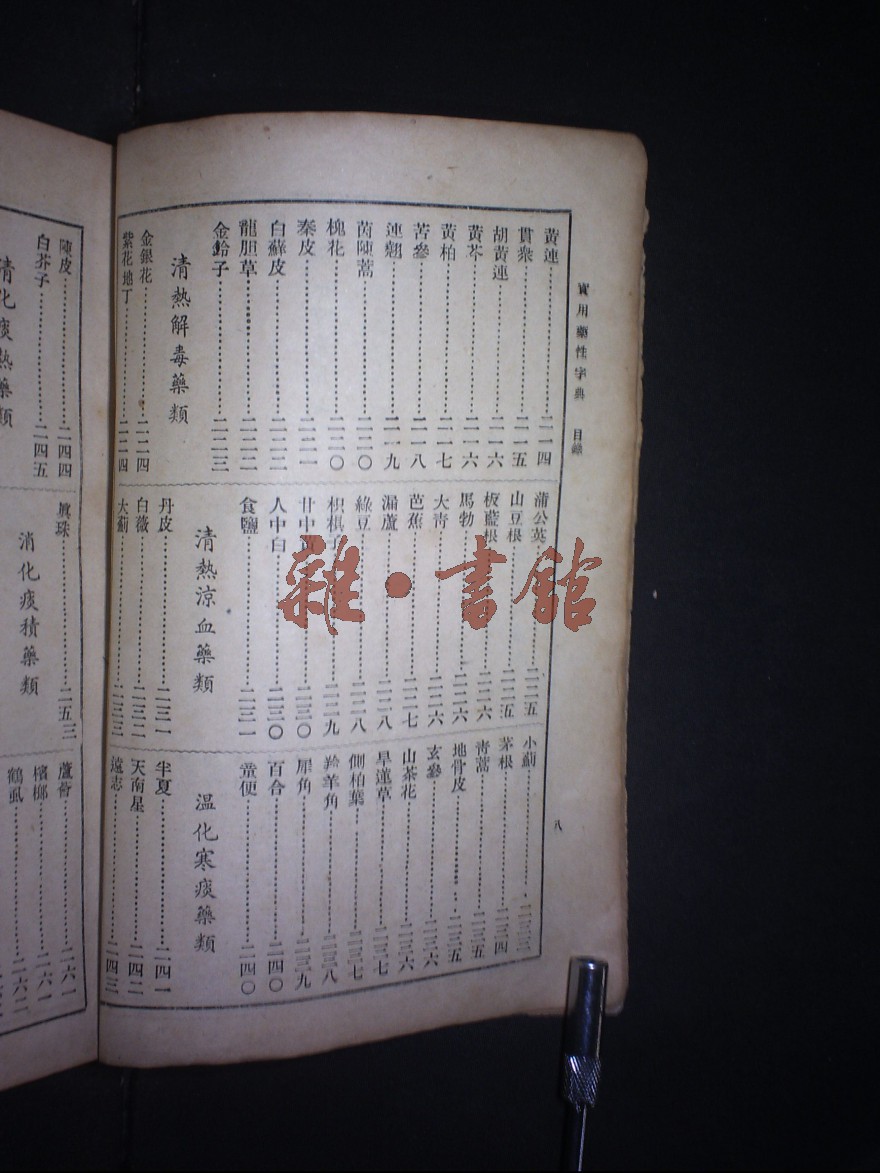 實用藥性字典 目錄
八
黃連 二一四
貫衆 二一五
胡黃連 二一六
黃芩 二一六
黃柏 二一七
苦參 二一八
連翹 二一九
茵陳蒿 二二〇
槐花 二二〇
秦皮 二二一
白蘚皮 二二二
龍胆草 二二二
金鈴子 二二三
清熱解毒藥類
金銀花 二二四
紫花地丁 二二四
蒲公英 二二五
山豆根 二二五
板藍根 二二六
馬勃 二二六
大靑 二二六
芭蕉 二二七
漏蘆 二二八
綠豆 二二八
枳椇子 二二九
甘中 二三〇
人中白 二三〇
食鹽 二三一
清熱涼血藥類
丹皮 二三一
白薇 二三二
大薊 二三三
小薊 二三三
茅根 二三四
靑蒿 二三五
地骨皮 二三五
玄參 二三六
山茶花 二三六
旱蓮草 二三七
側柏葉 二三七
羚羊角 二三八
犀角 二三九
百合 二四〇
童便 二四〇
温化寒痰藥類
半夏 二四一
天南星 二四二
遠志 二四三
陳皮 二四四
白芥子 二四五
清化痰熱藥類
眞珠 二五三
消化痰積藥類
蘆薈 二六一
檳榔 二六一
鶴虱 二六二
雜·書館